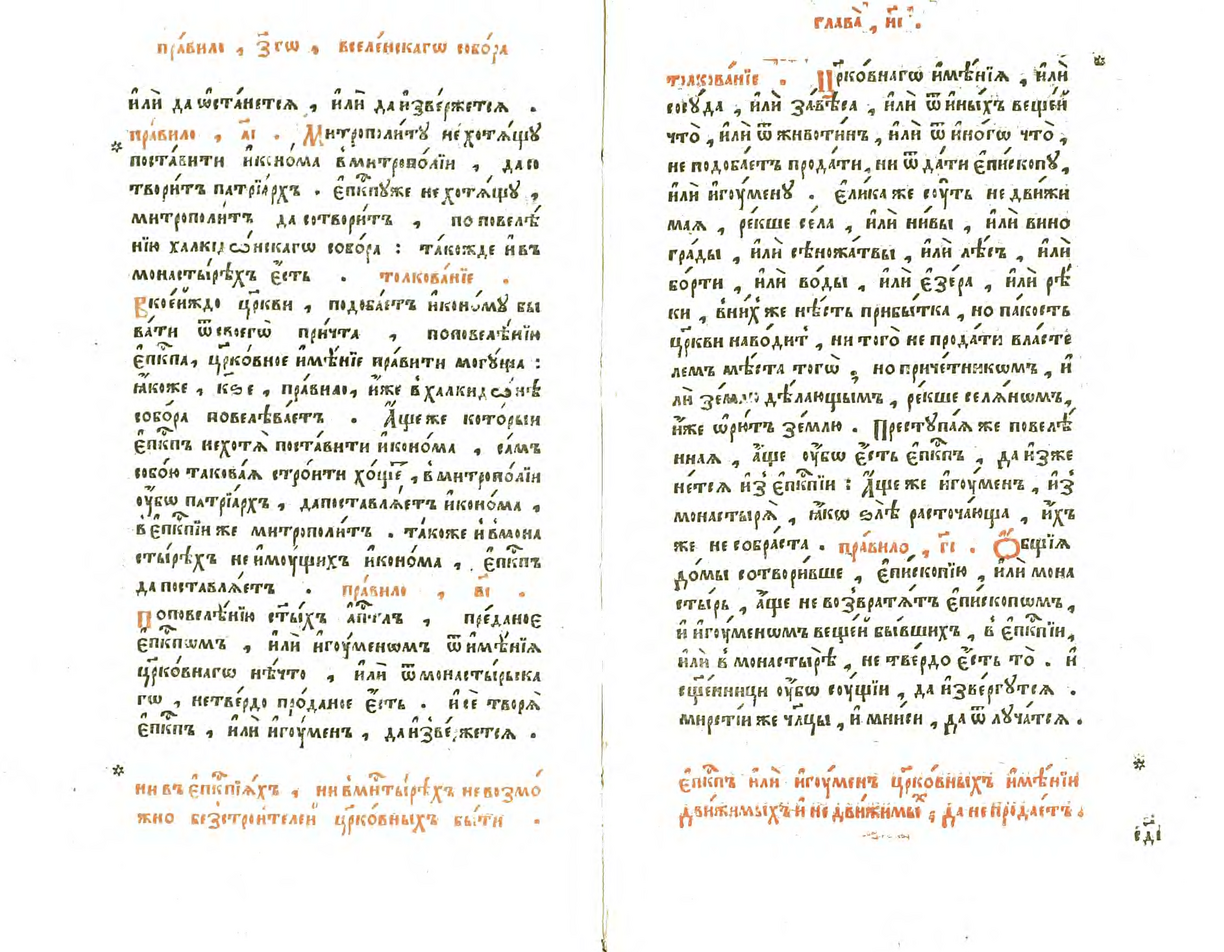 пра́вило , з҃ гѡ , вселе́нскагѡ собо́ра
и҆лѝ да ѡ҆ста́нется , и҆лѝ да и҆зве́ржется .
пра́вило , а҃і . Митрополи́ту не хотѧ́щу
поста́вити и҆коно́ма в̾митропо́лїи , да со
твори́тъ патрїа́рхъ . є҆пк҃пу же не хотѧ́щу ,
митрополи́тъ да сотвори́тъ , по повелѣ́
нїю халкидѡ́нскагѡ собо́ра : та́кожде и҆ въ
монасты́рѣхъ є҆́сть . толкова́нїе .
Вкоеи҆́ждо цр҃кви , подоба́етъ и҆коно́му бы
ва́ти ѿ своегѡ̀ при́чта , по повелѣ́нїю
є҆пк҃па , цр҃ко́вное и҆мѣ́нїе пра́вити могу́ща :
ꙗ҆́коже , к҃ѕ е , пра́вило , и҆́же в̾ халкидѡ́нѣ
собо́ра повелѣва́етъ . А҆́ще же кото́рыи
є҆пк҃пъ не хотѧ̀ поста́вити и҆коно́ма , са́мъ
собо́ю такова́ѧ стро́ити хо́щеⷮ , в̾ митропо́лїи
ѹ҆́бѡ патрїа́рхъ , да поставлѧ́етъ и҆коно́ма ,
в̾ є҆пк҃пїи же митрополи́тъ . та́коже и҆ в̾ мона
сты́рѣхъ не и҆мѹ́щихъ и҆коно́ма , є҆пк҃пъ
да поставлѧ́етъ . пра́вило , в҃і .
По повелѣ́нїю ст҃ы́хъ а҆пⷭ҇лъ , пре́даное
є҆пк҃пѡмъ , и҆лѝ и҆гѹ́меномъ ѿ и҆мѣ́нїѧ
цр҃ко́внагѡ нѣ́что , и҆лѝ ѿ монасты́рьска
гѡ , нетве́рдо про́даное є҆́сть . и҆ се́ творѧ̀
є҆пк҃пъ , и҆лѝ и҆гѹ́менъ , да и҆зве́ржется .
* ни въ є҆пк҃пїѧхъ , ни в̾ мн҃ты́рѣхъ невозмо́
жно без̾ строи́телей цр҃ко́вныхъ бы́ти .
глава̀ , н҃і .
толкова́нїе . Цр҃ко́внагѡ и҆мѣ́нїѧ , и҆лѝ
сосу́да , и҆лѝ завѣ́са , и҆лѝ ѿ и҆ны́хъ веще́й
что̀ , и҆лѝ ѿ живо́тинъ , и҆лѝ ѿ и҆но́гѡ что̀ ,
не подоба́етъ прода́ти , ни ѿда́ти є҆пи́скопу ,
и҆лѝ и҆гѹ́мену . є҆ли́ка же сѹ́ть недви́жи
маѧ , ре́кше се́ла , и҆лѝ ни́вы , и҆лѝ вино
гра́ды , и҆лѝ сѣножа́твы , и҆лѝ лѣ́съ , и҆лѝ
бо́рти , и҆лѝ во́ды , и҆лѝ є҆зе́ра , и҆лѝ рѣ́
ки , в̾ ни́хже нѣ́сть прибы́тка , но па́кость
цр҃кви наво́дитъ , ни того̀ не прода́ти власте́
лемъ мѣ́ста тогѡ̀ ; но приче́тникѡмъ , и҆
лѝ зе́млю дѣ́лающымъ , ре́кше селѧ́нѡмъ ,
и҆́же ѡ҆рю́тъ зе́млю . Преступа́ѧ же повелѣ́
ннаѧ , а҆́ще ѹ҆́бѡ є҆́сть є҆пк҃пъ , да и҆зже
не́тся и҆з̾ є҆пк҃пїи : А҆́ще же и҆гѹ́менъ , и҆з̾
монастырѧ̀ , ꙗ҆́кѡ ѕлѣ̀ расточа́юща , и҆́хъ
же не собра́ста . пра́вило , г҃і . Ѻ҆́бщїѧ
до́мы сотвори́вше , є҆пископі́ю , и҆лѝ мона
сты́рь , а҆́ще не возвратѧ́тъ є҆пи́скопѡмъ ,
и҆ и҆гѹ́менѡмъ веще́й бы́вшихъ , в̾ є҆пк҃пїи ,
и҆лѝ в̾ монастырѣ̀ , не тве́рдо є҆́сть то̀ . и҆
сщ҃е́нницы ѹ҆́бѡ сѹ́щїи , да и҆зве́ргутся .
мирстїи же чл҃цы , и҆ мни́си , да ѿлуча́тся .
* є҆пк҃пъ и҆лѝ и҆гѹ́менъ цр҃ко́вныхъ и҆мѣ́нїи
дви́жимыхъ и҆ недви́жимыⷯ , да не прода́етъ .
є҃ді